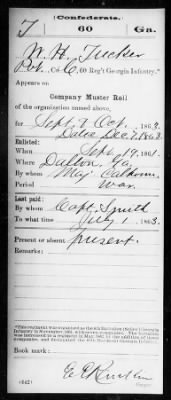 (Confederate.)
T 60 Ga.
W. H. Tucker
Pvt., Co. C, 60 Reg't Georgia Infantry.*
Appears on
Company Muster Roll
of the organization named above,
for Sept. & Oct., 1863.
Dated Dec. 7, 1863
Enlisted:
When Sept 19, 1861.
Where Dalton, Ga.
By whom Maj. Calhoun
Period war.
Last paid:
By whom Capt. Smith
To what time July 1, 1863.
Present or absent present.
Remarks:
Book mark:
(642)
Copyist.